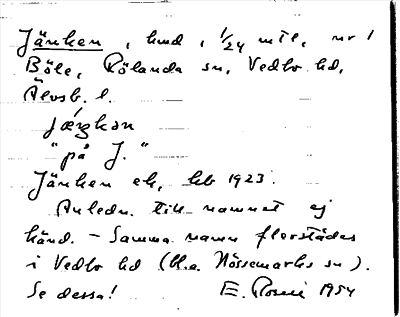 Jänken, hmd, 1/24 mtl, nr 1
Böle, Rölanda sn, Vedbo hd,
Älvsb. l.
"på J."
Jänken ek, hb 1923.
Anledn. till namnet ej
känd. - Samma namn flerstädes
i Vedbo hd (bl.a. Nössemarks sn).
Se dessa! E. 1954